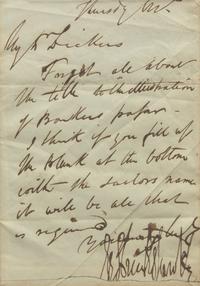 Thursday
My Dr Dickens
Forget all about
the title to the illustration
of Boulkers papers
I think if you fill up
the blank at the bottom
with the sailors name
it will be all that
is required